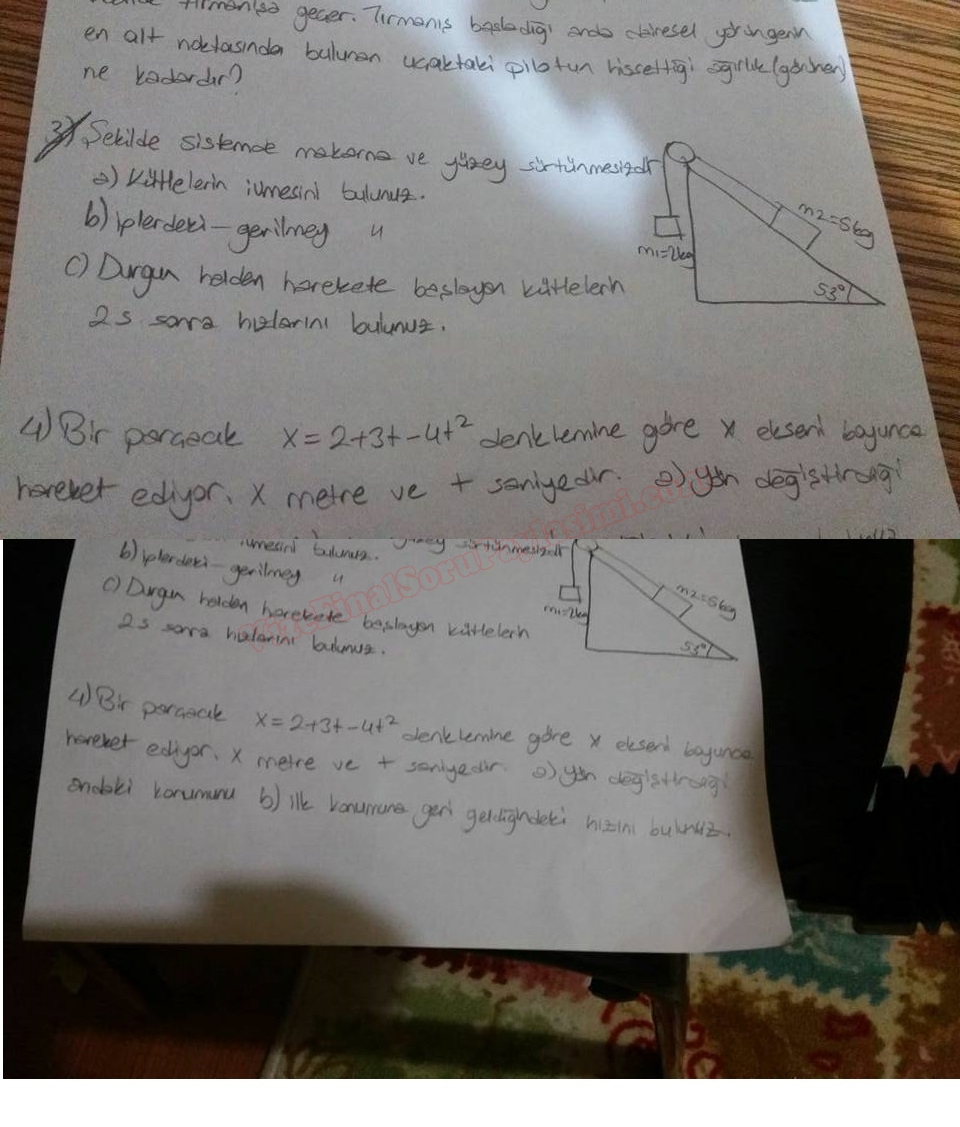 tırmanışa geçer. Tırmanış başladığı anda dairesel yörüngenin
en alt noktasında bulunan uçaktaki pilotun hissettiği ağırlık (görünen)
ne kadardır?
3) Şekilde sistemde makara ve yüzey sürtünmesizdir
a) Kütlelerin ivmesini bulunuz.
b) iplerdeki gerilmey "
c) Durgun halden harekete başlayan kütlelerin
2s sonra hızlarını bulunuz.
m1=2kg
m2=8kg
53°
4) Bir parçacık x=2+3t-4t² denklemine göre x ekseni boyunca
hareket ediyor. x metre ve t saniyedir. a) Yön değiştirdiği
ivmesini bulunuz. yüzey sürtünmesizdir
b) iplerdeki gerilmey "
c) Durgun halden harekete başlayan kütlelerin
2s sonra hızlarını bulunuz.
m1=2kg
m2=8kg
53°
4) Bir parçacık x=2+3t-4t² denklemine göre x ekseni boyunca
hareket ediyor. x metre ve t saniyedir. a) Yön değiştirdiği
andaki konumunu b) ilk konumuna geri geldiğindeki hızını bulunuz.